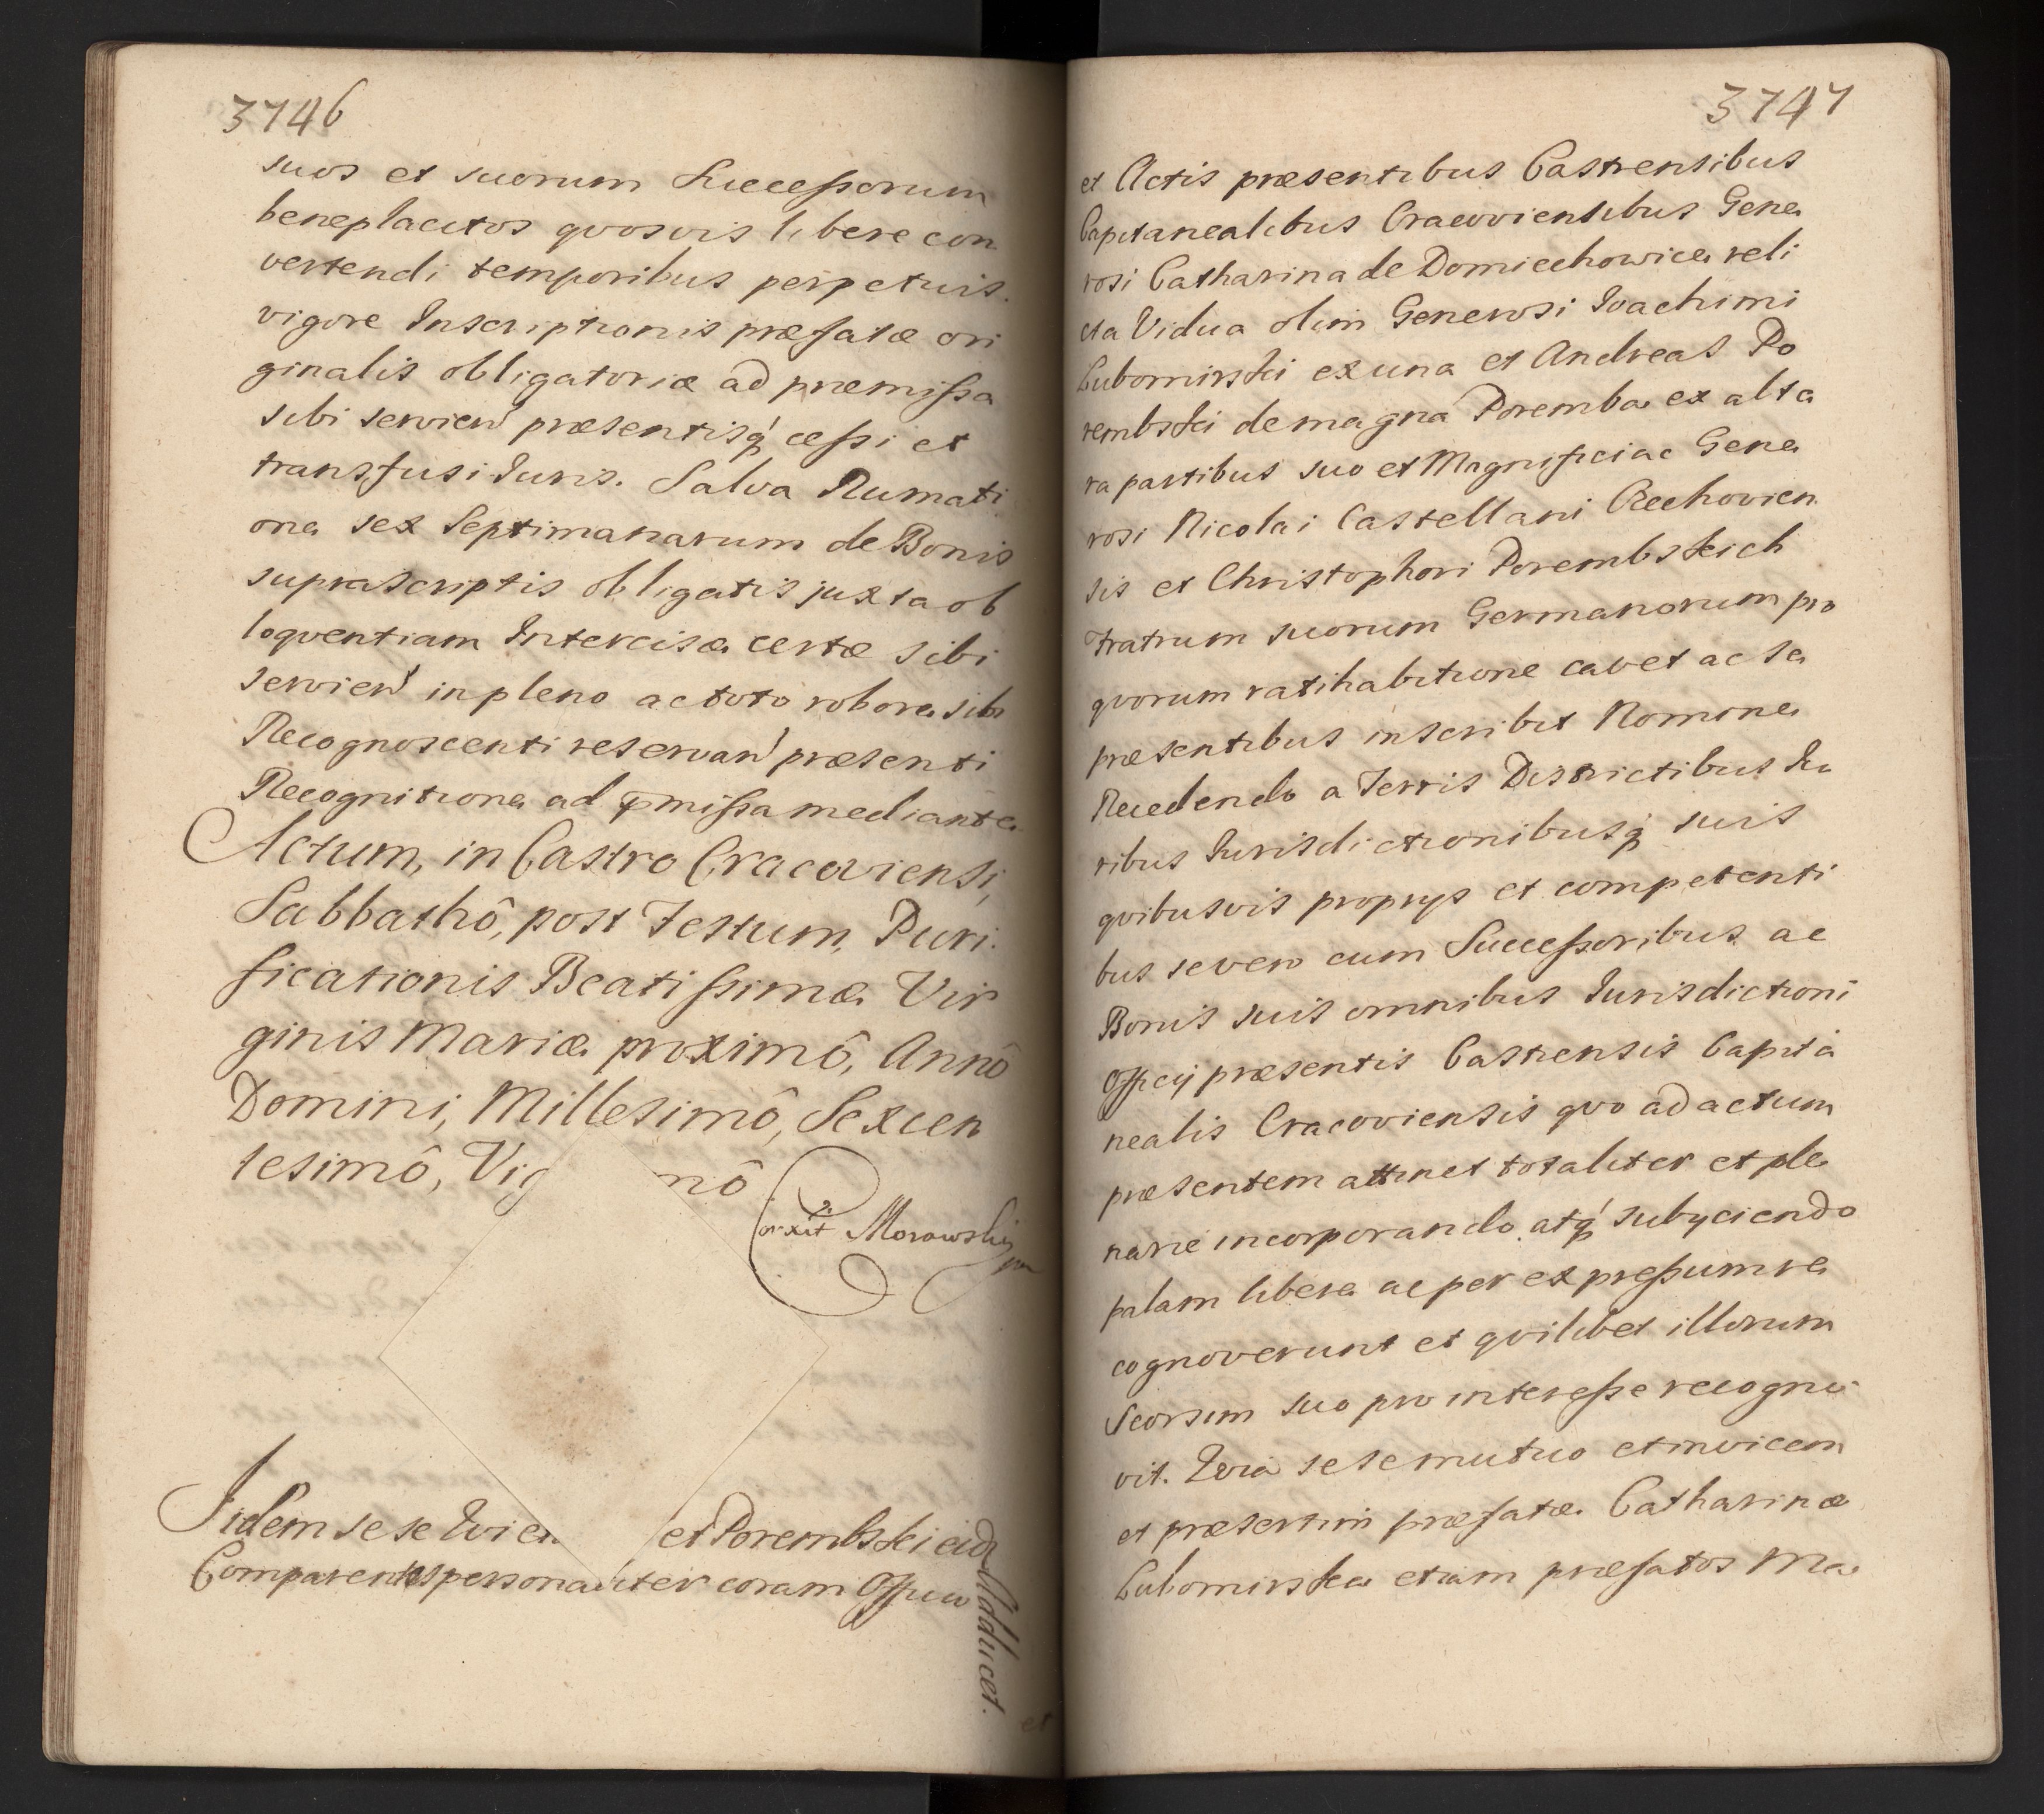 3746
suos et suorum Successorum
beneplacitos qvosvis libere con
vertendi temporibus perpetuis.
vigore Inscriptionis præfatæ ori
ginalis obligatoriæ ad præmissa
sibi servien præsentisq́ cessi et
transfusi Iuris. Salva Rumati
one sex Septimanarum de Bonis
suprascriptis obligatis juxta ob
loqventiam Intercisæ certæ sibi
servien in pleno ac toto robore sibi
Recognoscenti reservan præsenti
Recognitione ad pmissa mediante
Actum, in Castro Cracoviensi,
Sabbathô, post Festum, Puri.
ficationis Beatissimæ Vir
ginis Mariæ proximô, Annô
Domini, Millesimô, Sexcen
tesimô, Vig nô
Corxit Morowski
Iidem sese Evien et Porembski eid
Comparentes personaliter coram Officio
Adducet.
et
3747
et Actis præsentibus Castrensibus
Capitanealibus Cracoviensibus Gene
rosi Catharina de Domiechowice reli
cta Vidua olim Generosi Ioachimi
Lubomirski ex una et Andreas Po
rembski de magna Poremba ex alta
ra partibus suo et Magnifici ac Gene
rosi Nicolai Castellani Oechovien
sis et Christophori Porembskich
Fratrum suorum Germanorum pro
qvorum ratihabitione cavet ac se
præsentibus inscribit Nomine
Recedendo a Terris Districtibus Iu
ribus Iurisdictionibusq́ suis
qvibusvis proprys et competenti
bus se vero cum Successoribus ac
Bonis suis omnibus Iurisdictioni
Officij præsentis Castrensis Capita
nealis Cracoviensis qvo ad actum
præsentem attinet totaliter et ple
narie incorporando atq́ subyciendo
palam libere ac per expressum re
cognoverunt et qvilibet illorum
Seorsim suo pro interesse recogno
vit. Qvia sese mutuo et invicem
et præsertim præfatæ Catharinæ
Lubomirska etiam præfatos Ma